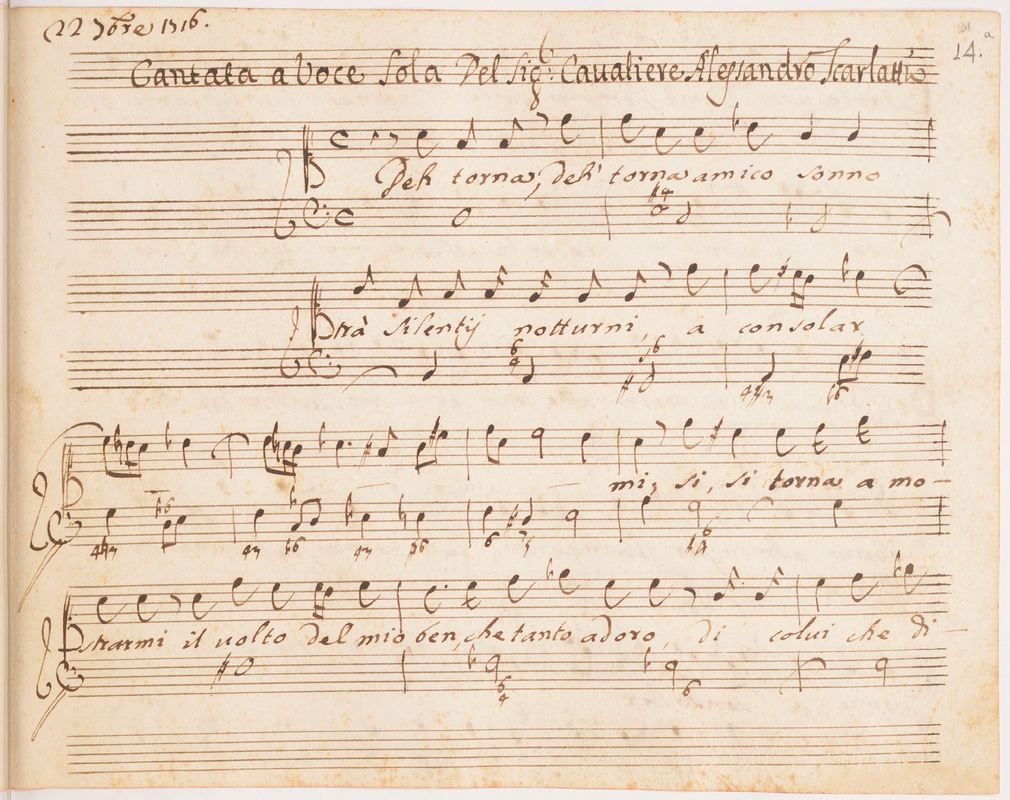 22 7bre 1716.
14.a
Cantata a Voce Sola Del Sig.r Caualiere Alessandro Scarlatti
Deh torna, deh torna amico sonno
trà silentij notturni, a consolar
mi, si, si torna a mo-
strarmi il uolto del mio ben, che tanto adoro, di colui che di-